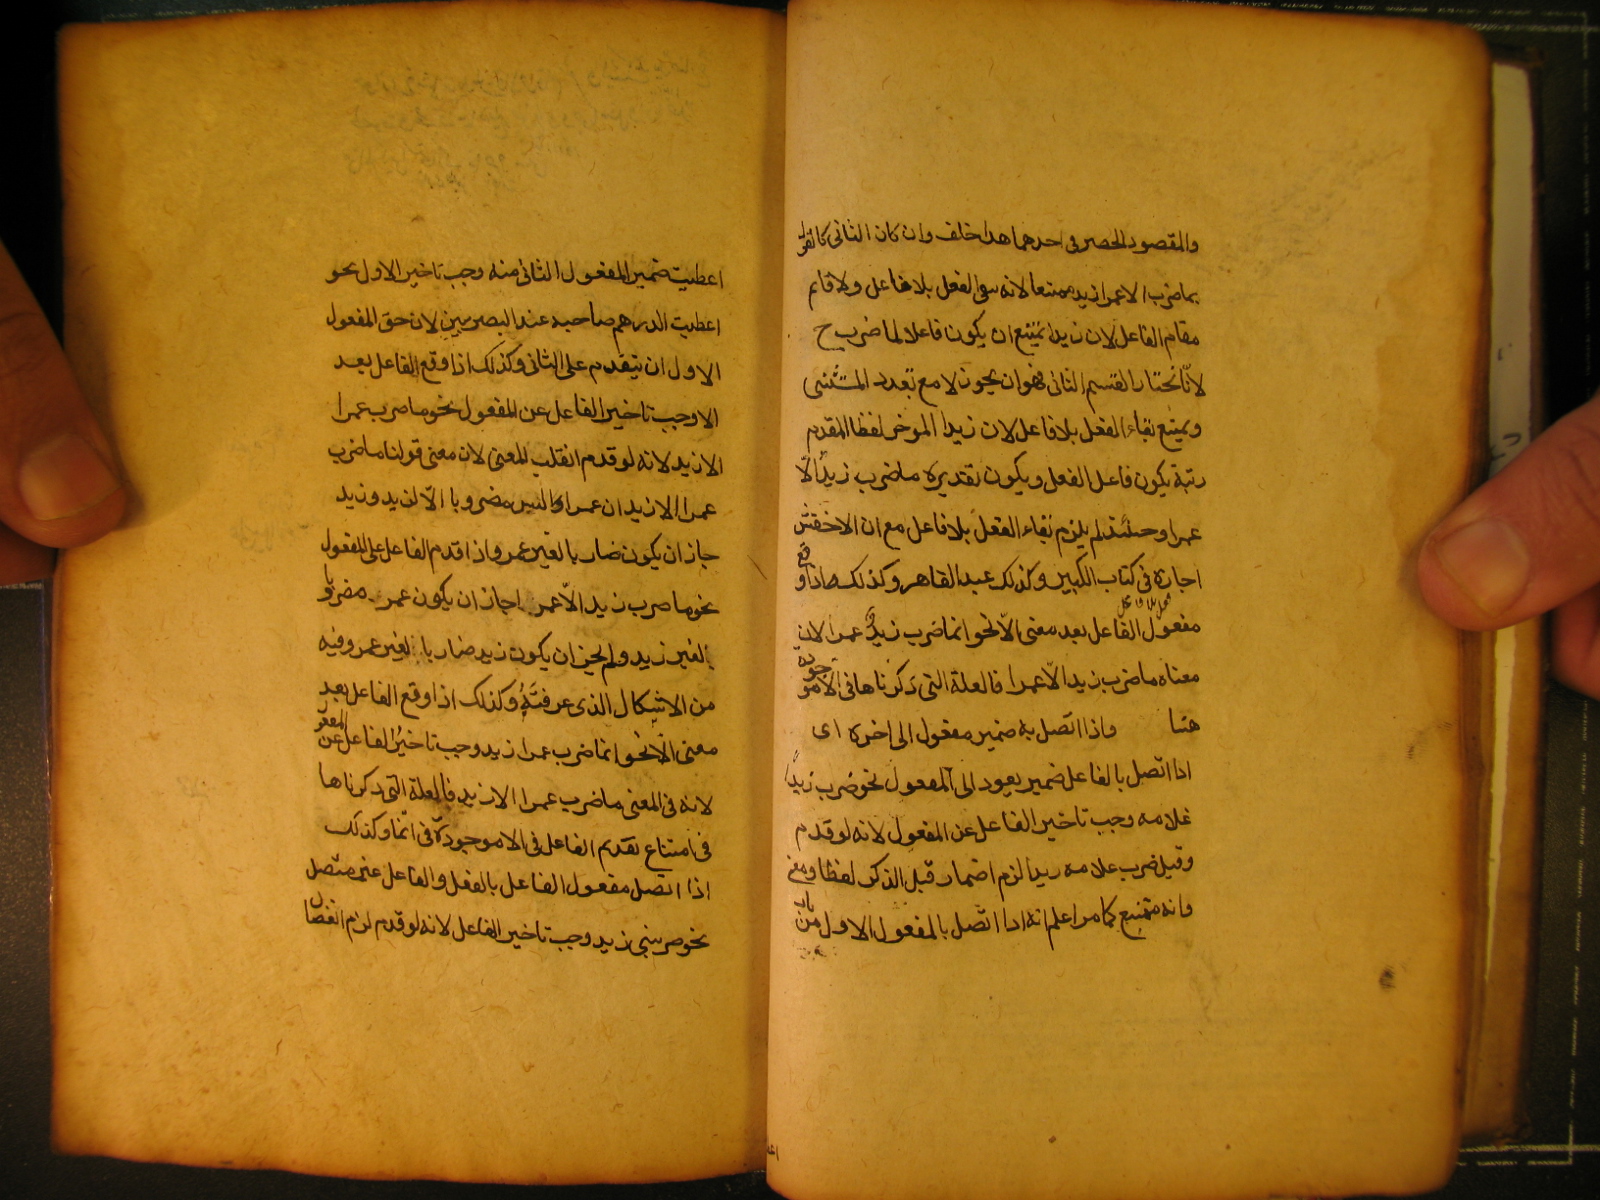 والمقصود الحصر فى احدهما هذا خلف وان كان الثانى كالقول
بماضرب الا عمرا زيد ممتنعا لانه بقى الفعل بلا فاعل ولا قايم
مقام الفاعل لان زيدا يمتنع ان يكون فاعلا لما ضرب ح
لانّا نختار القسم الثانى فهو ان يجوز لا مع تعدد المستثنى
ويمتنع بقاء الفعل بلا فاعل لان زيدا الموخر لفظا المقدم
رتبة يكون فاعل الفعل ويكون تقديره ماضرب زيد الّا
عمرا وحينئذ لم يلزم بقاء الفعل بلا فاعل مع ان الاخفش
اجازه فى كتاب الكبير وكذلك عبد القاهر وكذلك اذا وقع
مفعول الفاعل بعد معنى الّا نحو انما ضرب زيد عمرا لان
معناه ماضرب زيد الّا عمرا فالعلة التى ذكرناها فى الا موجودة
هنا واذا اتّصل به ضمير مفعول الى اخره اى
اذا اتصل بالفاعل ضمير يعود الى المفعول نحو ضرب زيدًا
غلامه وجب تاخير الفاعل عن المفعول لانه لو قدم
وقيل ضرب غلامه زيدا لزم اضمار قبل الذكر لفظا ومعنى
وانه ممتنع كما مر اعلم انه اذا اتّصل بالمفعول الاول من باب
اعطيت ضمير المفعول الثانى منه وجب تاخير الاول نحو
اعطيت الدرهم صاحبه عند البصريين لان حق المفعول
الاول ان يتقدم على الثانى وكذلك اذا وقع الفاعل بعد
الا وجب تاخير الفاعل عن المفعول نحو ماضرب عمرا
الا زيد لانه لو قدم انقلب المعنى لان معنى قولنا ماضرب
عمرا الا زيد ان عمرا ليس مضروبا الّا لزيد وزيد
جاز ان يكون ضاربا لغير عمرو واذا قدم الفاعل على المفعول
نحو ماضرب زيد الّا عمرا جاز ان يكون عمرو مضروبا
لغير زيد ولم يجز ان يكون زيد ضاربا لغير عمرو وفيه
من الاشكال الذى عرفته وكذلك اذا وقع الفاعل بعد
معنى الّا نحو انما ضرب عمرا زيد وجب تاخير الفاعل عن المفعول
لانه فى المعنى ماضرب عمرا الا زيد فالعلة التى ذكرناها
فى امتناع تقديم الفاعل فى الا موجودة فى انّما وكذلك
اذا اتصل مفعول الفاعل بالفعل والفاعل غير متصل
نحو ضربنى زيد وجب تاخير الفاعل لانه لو قدم لزم انفصال